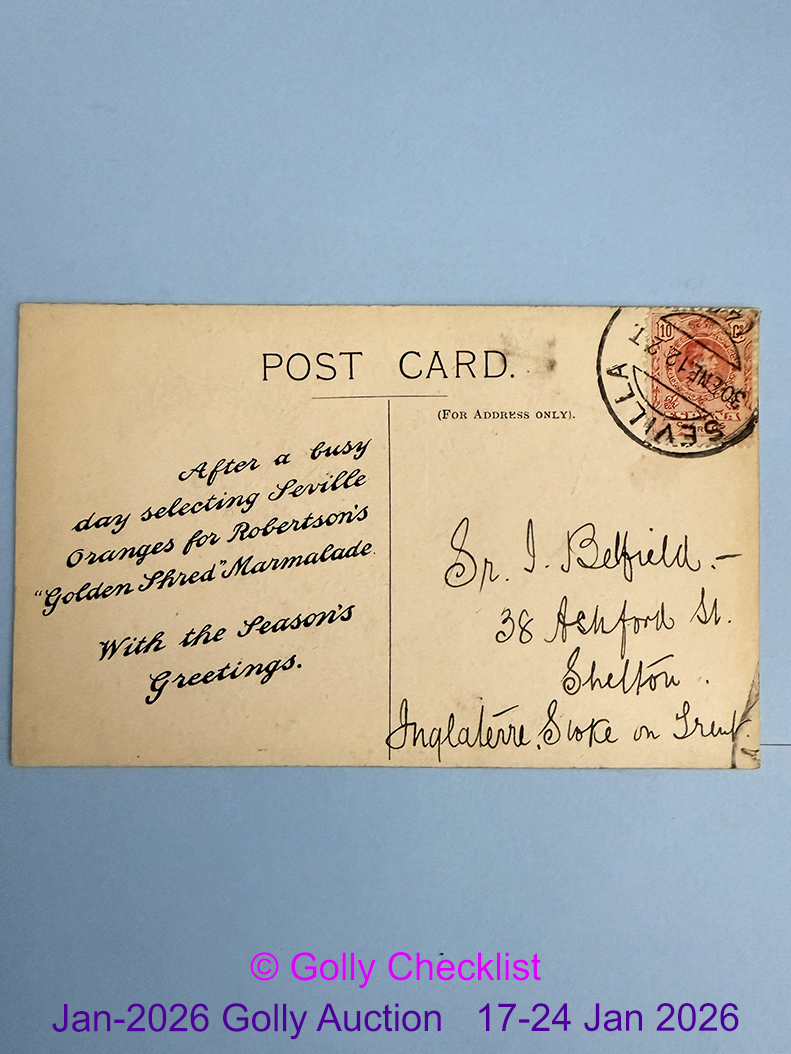 POST CARD.
(For Address only).
After a busy
day selecting Seville
Oranges for Robertson's
"Golden Shred" Marmalade.
With the Season's
Greetings.
10 Cs
SEVILLA
30 ENE 12
Sr. I. Belfield. —
38 Ashford St.
Shelton.
Inglaterre, Stoke on Trent.
© Golly Checklist
Jan-2026 Golly Auction 17-24 Jan 2026